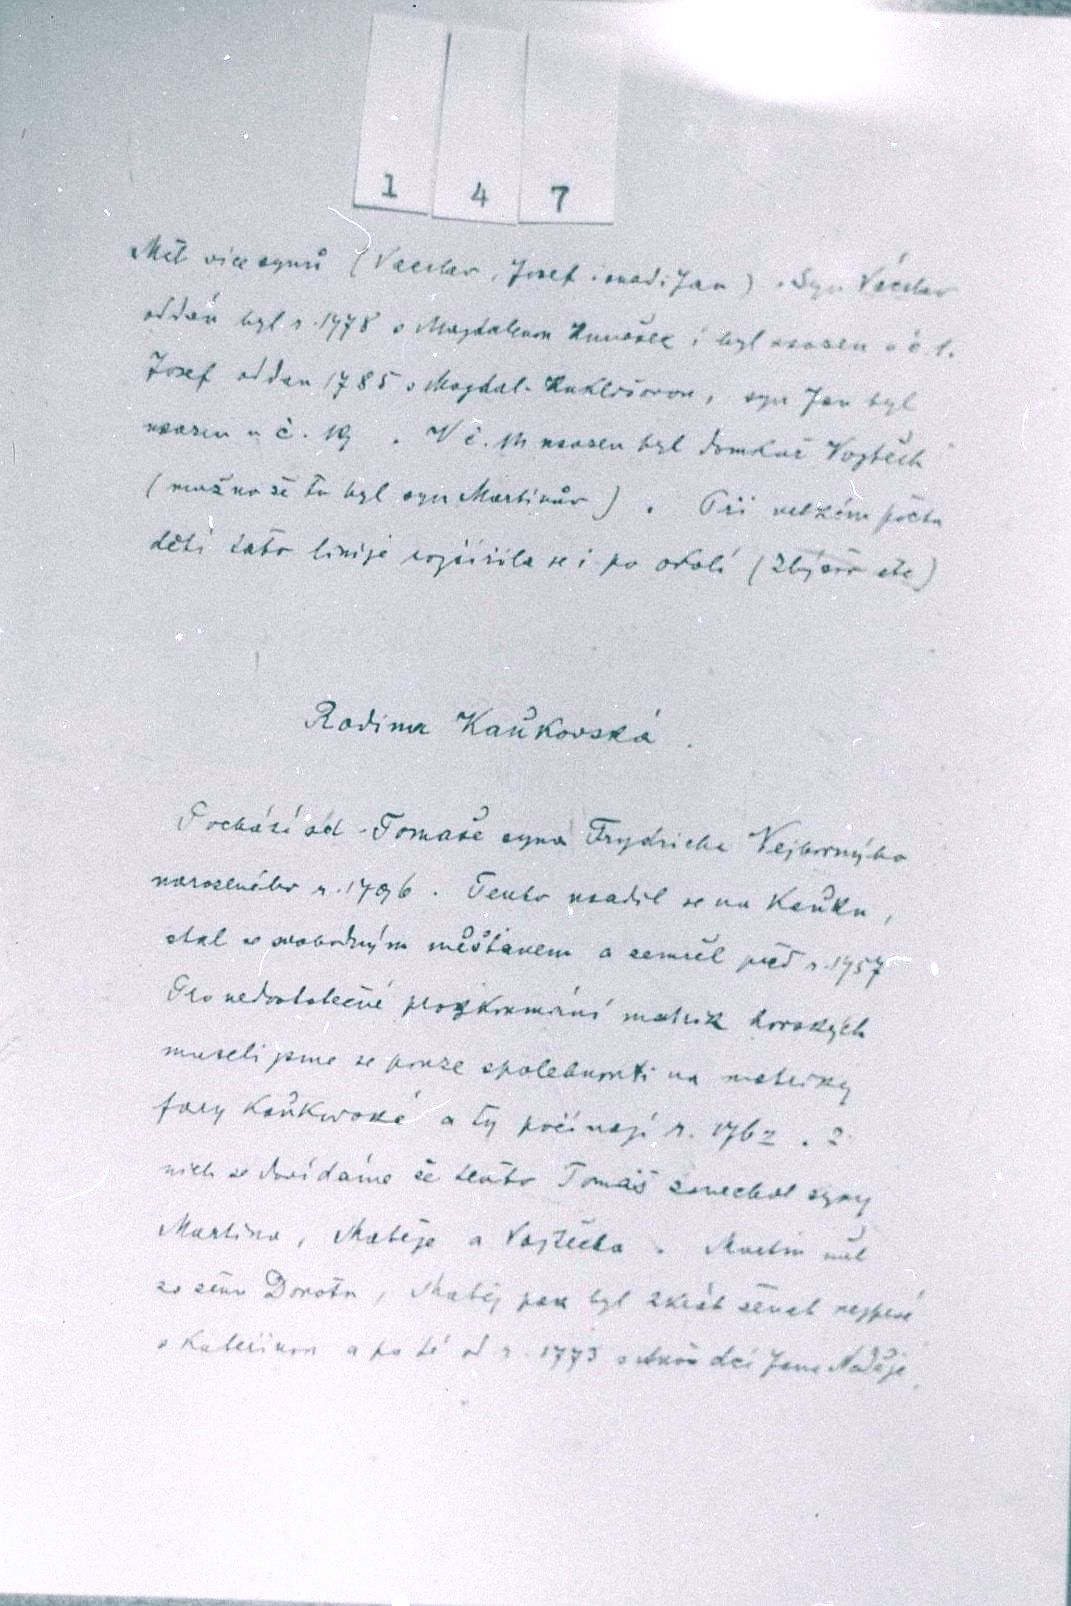 1 4 7
Měl více synů (Václav, Josef i snad i Jan). Syn Václav
oddán byl r. 1778 s Magdalenou i byl usazen v č. 1.
Josef oddan 1785 s Magdal. Kuklišovou, syn Jan byl
usazen v č. 19. V č. usazen byl domkař Vojtěch
(možno že to byl syn Martinův). Při velkém počtu
dětí tato linije rozšířila se i po okolí (Zbýšov etc)
Rodina Kaňkovská.
Pochází od Tomáše syna Frydricha Vejborného
narozeného r. 1696. Tento usadil se na Kaňku,
stal se svobodným měšťanem a zemřel před r. 1757
Pro nedostatečné prozkoumání matrik horských
museli jsme se pouze spolehnouti na matriky
fary Kaňkovské a ty počínají r. 1762. Z
nich se dovídáme že tento Tomáš zanechal syny
Martina, Matěje a Vojtěcha. Martin měl
za ženu Dorotu, Matěj pak byl 2krát ženat nejprve
s Kateřinou a po té od r. 1773 s dcí Jana Naděje.